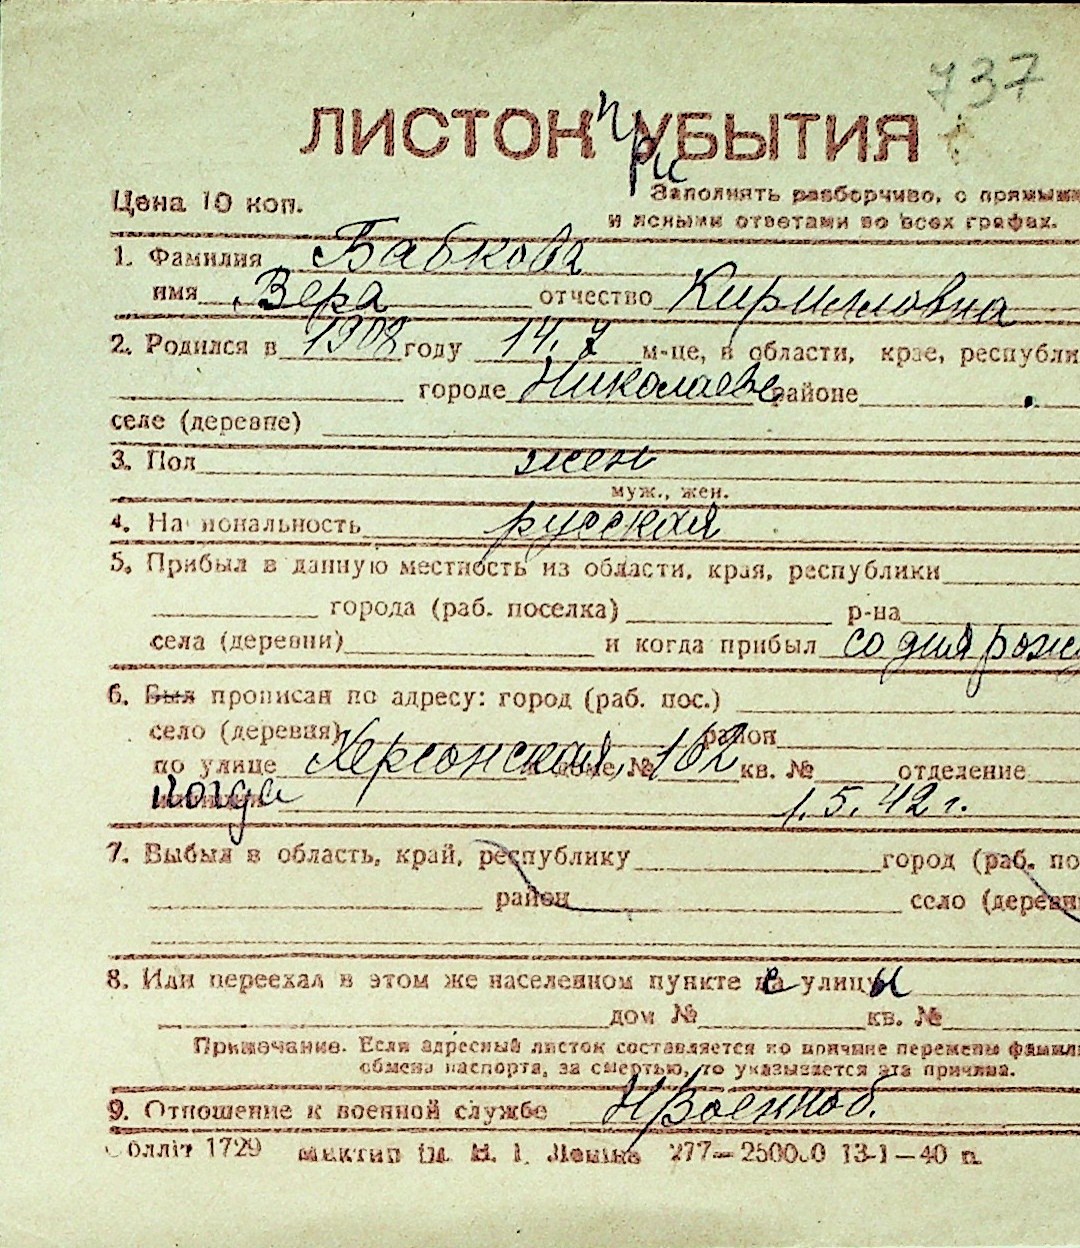 737
ЛИСТОК УБЫТИЯ
при
Цена 10 коп.
Заполнять разборчиво, с прямыми
и ясными ответами во всех графах.
1. Фамилия Бабкова
имя Вера отчество Кирилловна
2. Родился в 1908 году 14.7 м-це, в области, крае, республи
городе Николаеве районе
селе (деревне)
3. Пол жен
муж., жен.
4. Национальность русская
5. Прибыл в данную местность из области, края, республики
города (раб. поселка) р-на
села (деревни) и когда прибыл со дня рожд
6. Был прописан по адресу: город (раб. пос.)
село (деревня) район
по улице Херсонская доме № 162 кв. № отделение
когда 1.5.42 г.
7. Выбыл в область, край, республику город (раб. по
район село (деревн
8. Или переехал в этом же населенном пункте с улицы
дом № кв. №
Примечание. Если адресный листок составляется по причине перемены фамили
обмена паспорта, за смертью, то указывается эта причина.
9. Отношение к военной службе Н/военноб.
Обллiт 1729 277—250000 13-1—40 п.